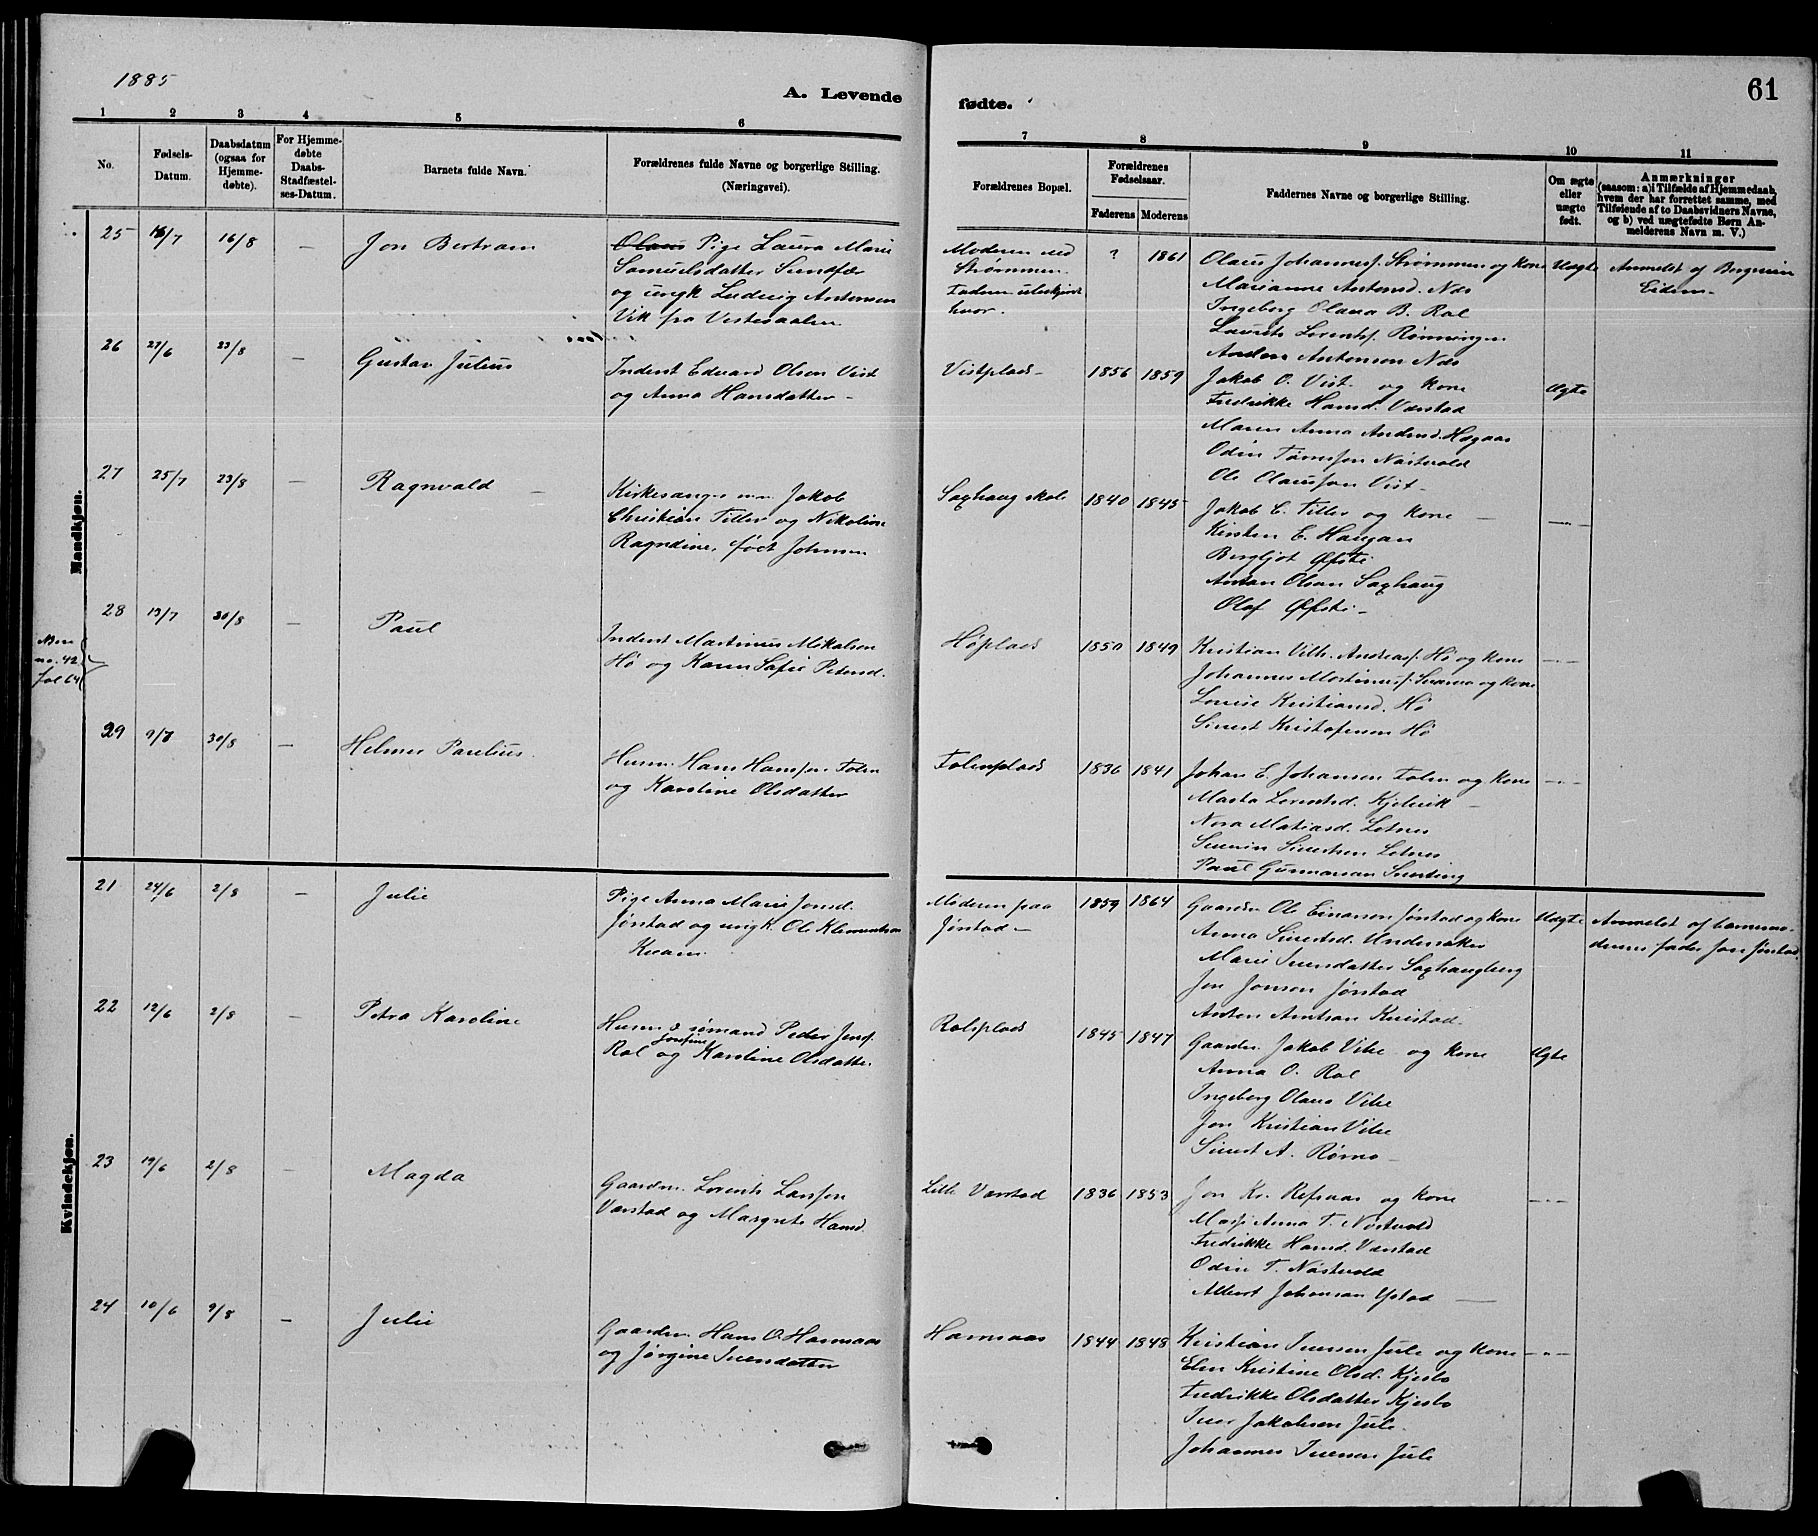 1885
A. Levende
fødte.
61
1 2 3 4 5 6
7 8 9 10 11
No.
Fødsels-Datum.
Daabsdatum (ogsaa for Hjemme-døbte).
For Hjemme-døbte Daabs-Stadfæstel-ses-Datum.
Barnets fulde Navn.
Forældrenes fulde Navne og borgerlige Stilling.
(Næringsvei).
Forældrenes Bopæl.
Forældrenes Fødselsaar.
Faderens Moderens
Faddernes Navne og borgerlige Stilling.
Om ægte eller uægte født.
Anmærkninger
(saasom: a) i Tilfælde af Hjemmedaab, hvem der har forrettet samme, med Tilføiende af to Daabsvidners Navne, og b) ved uægtefødte Børn Anmelderens Navn m. V.)
Mandkjøn.
25 16/7 16/8 — Jon Bertram
Olaus Pige Laura Marie
Samuelsdatter Sundfær
og ungk Ludvig Antonsen
Vik fra Vesteraalen
Moderen ved
Strømmen.
Faderen ubekjendt
hvor.
? 1861
Olaus Johannesf. Strømmen og kone
Marianne Antonsd. Næs
Ingeborg Olaua B. Rol
Laurits Lorentsf. Rønningen
Anders Antonsen Næs
Uægte
Anmeldt af Bergmin
Eidem
26 27/6 23/8 — Gustav Julius
Inderst Edvard Olsen Vist
og Anna Hansdatter —
Vistplads —
1856 1859
Jakob O. Vist og kone
Fredrikke Hansd. Værstad
Maren Anna Andersd. Hagaas
Odin Tønnesen Nøstvold
Ole Olausen Vist —
Ægte
27 25/7 23/8 — Ragnvald —
Kirkesanger m.m. Jakob
Christian Tiller og Nikoline
Ragndine, født Johnsen
Saxhaug skole
1840 1845
Jakob C. Tiller og kone —
Kirsten E. Haugan
Bergljot Øfsti
Anton Olsen Saxhaug
Olaf Øfsti —
— " —
28 19/7 30/8 — Paul
no. 42
fol 64
Inderst Martinus Mikalsen
Hø og Karen Sofie Petersd.
Høplads
1850 1849
Kristian Vilh. Andreasf. Hø og kone
Johannes Mortinusf. Svarva og kone
Lovise Kristiansd. Hø
Sivert Kristofersen Hø
— " —
29 9/7 30/8 — Helmer Paulius
Husm. Hans Hansen Folen
og Karoline Olsdatter
Folenplads
1836 1841
Johan E. Johansen Folen og kone
Marta Lorentsd. Kjelvik —
Nora Matiasd. Letnes
Severin Sivertsen Letnes
Paul Gunnarsen Sverting
— " —
Kvindekjøn.
21 24/6 2/8 — Julie
Pige Anna Marie Jonsd.
Jørstad og ungk. Ole Klementsen
Kvam.
Moderen paa
Jørstad —
1859 1864
Gaardbr. Ole Einarsen Jørstad og kone
Anna Sivertsd. Undersaker
Marie Iversdatter Saxhaugberg
Jon Jonsen Jørstad
Anton Arntsen Kvistad
Uægte
Anmeldt af barnemo-
derens fader Jon Jørstad.
22 12/6 2/8 — Petra Karoline
Husm & sømand Peder Jensf.
Rol og Josefine Karoline Olsdatter
Rolsplads
1845 1847
Gaardbr. Jakob Vibe og kone
Anna O. Rol
Ingeborg Olaua Vibe
Jon Kristian Vibe
Sivert A. Rømo —
Ægte
23 19/6 2/8 — Magda
Gaardm. Lorents Larsen
Værstad og Margrete Hansd.
Lille Værstad
1836 1853
Jon Kr. Refsaas og kone
Marsi Anna T. Nøstvold
Fredrikke Hansd. Værstad
Odin T. Nøstvold
Albert Johansen Ystad —
— " —
24 10/6 9/8 — Julie
Gaardm. Hans O. Hamsaas
og Jørgine Iversdatter
Hamsaas
1844 1848
Kristian Iversen Jule og kone
Elen Kristine Olsd. Kjesbo
Fredrikke Olsdatter Kjesbo
Iver Jakobsen Jule.
Johannes Iversen Jule
— " —